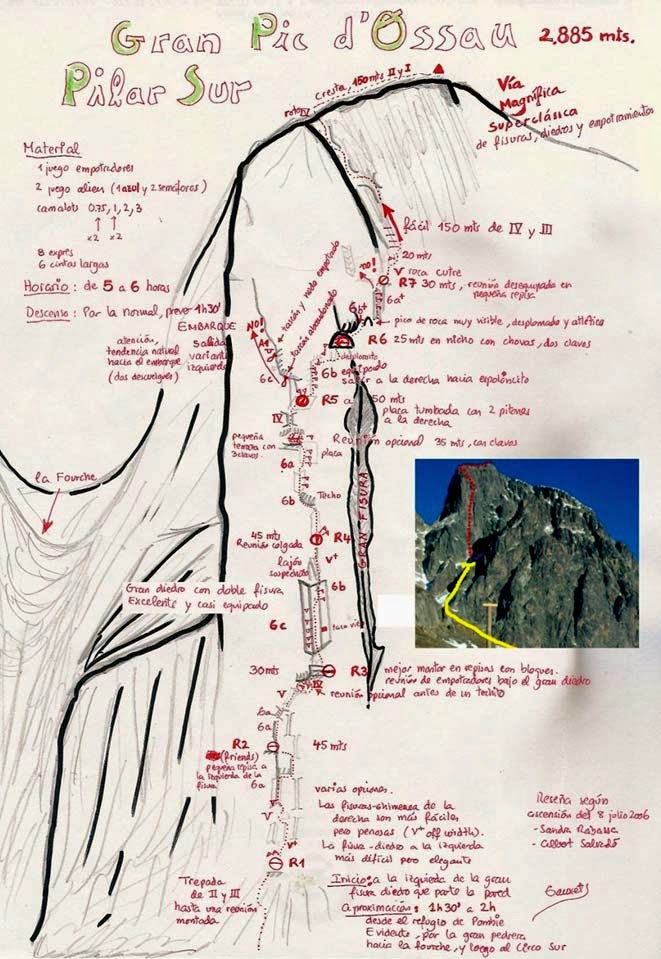 Gran Pic d'Ossau 2,885 mts.
Pilar Sur
Cresta 150 mts II y I
roto IV
Vía
Magnífica
superclásica
de fisuras, diedros y empotramientos
Material
1 juego empotradores
2 juego alien (1 azul y 2 semáforos)
camalots 0.75, 1, 2, 3
x2 x2
8 exprés
6 cintas largas
Horario: de 5 a 6 horas
Descenso: Por la normal, preve 1h30'
EMBARQUE
atención,
tendencia natural
hacia el embarque
(dos descuelgues)
salida
variante
izquierda
NO!
A1
6c
tascón y nudo empotrado
tascón abandonado
fácil 150 mts de IV y III
20 mts
V roca cutre
no!
R7 30 mts, reunión desequipada en
pequeña repisa
6a+
6b+
pico de roca muy visible, desplomado y atlético
R6 25 mts en nicho con chovas, dos clavos
desplomito
6b equipado
salir a la derecha hacia espoloncito
R5 a 50 mts
placa tumbada con 2 pitones
a la derecha
IV
Reunión opcional 35 mts, con clavos
pequeña
terraza con
3 clavos.
placa
6a
6b
Techo
la Fourche
GRAN FISURA
45 mts
Reunión colgada
R4
V+
lajón
sospechoso
Gran diedro con doble fisura
Excelente y casi equipado
6b
6c
30 mts
R3
mejor montar en repisas con bloques.
reunión de empotradores bajo el gran diedro
IV
reunión opcional antes de un techito
V
6a
6a
R2
(friends)
pequeña repisa a
la izquierda de la
fisura
45 mts
6a
V
V+
varias opciones.
Las fisuras-chimenea de la
derecha son más fáciles,
pero penosas (V+ off width).
La fisura-diedro a la izquierda
más difícil pero elegante
R1
Trepada
de II y III
hasta una reunión
montada
Inicio: a la izquierda de la gran
fisura diedro que parte la pared
Aproximación: 1h30' a 2h
desde el refugio de Pombie
Evidente, por la gran pedrera
hacia la fourche, y luego al Circo Sur
Reseña según
ascensión del 8 julio 2006